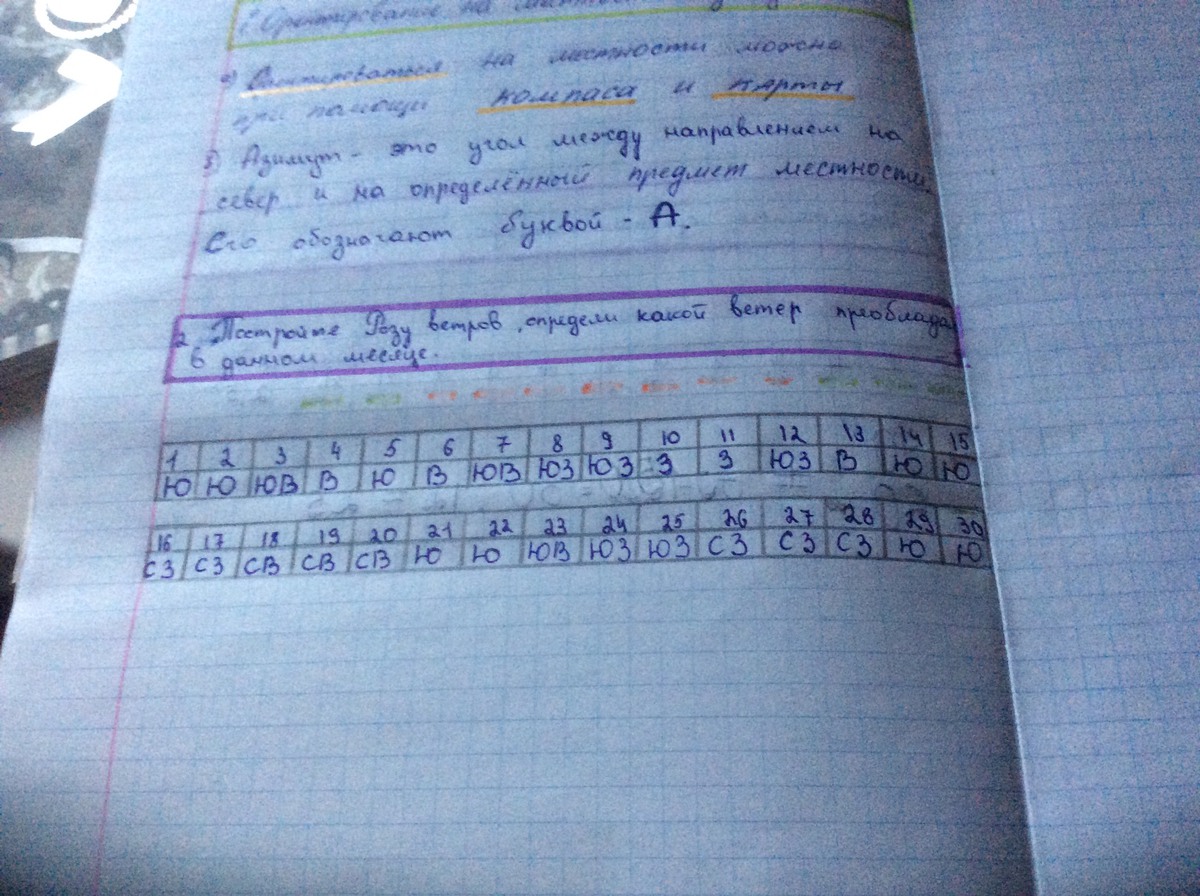 1. Ориентирование на местности
2) Ориентироваться на местности можно
при помощи компаса и карты
3) Азимут - это угол между направлением на
север и на определённый предмет местности.
Его обозначают буквой - А.
2. Постройте Розу ветров, определи какой ветер преоблада
в данном месяце.
1 2 3 4 5 6 7 8 9 10 11 12 13 14 15
Ю Ю ЮВ В Ю В ЮВ ЮЗ ЮЗ З З ЮЗ В Ю Ю
16 17 18 19 20 21 22 23 24 25 26 27 28 29 30
СЗ СЗ СВ СВ СВ Ю Ю ЮВ ЮЗ ЮЗ СЗ СЗ СЗ Ю Ю